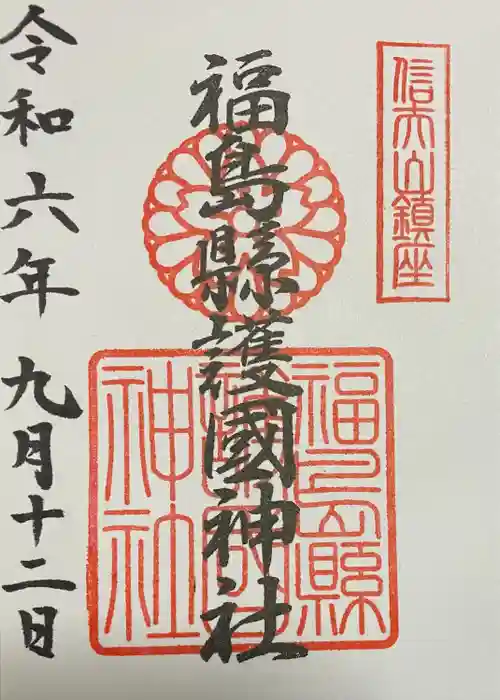 信夫山鎮座
福島縣護國神社
福島縣護國神社
令和六年九月十二日